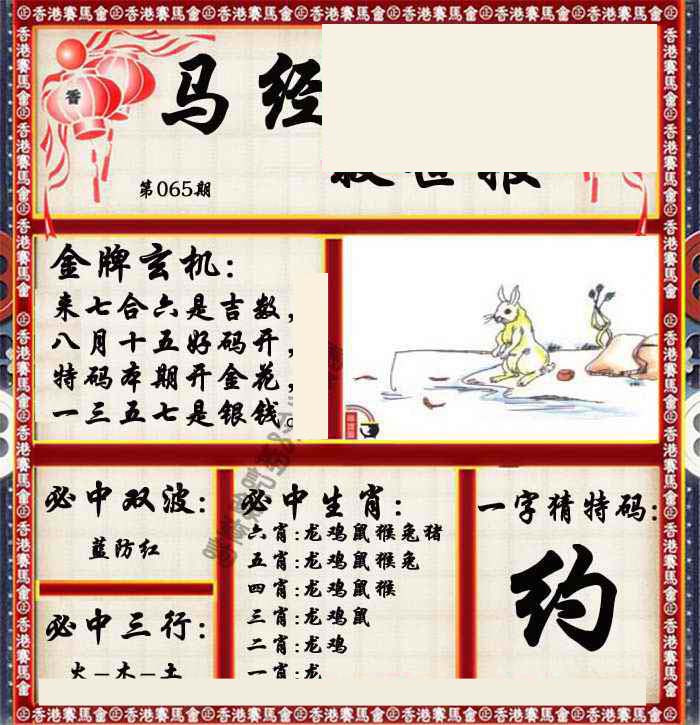 马经
救世报
第065期
金牌玄机:
来七合六是吉数,
八月十五好码开,
特码本期开金花,
一三五七是银钱。
必中双波:
蓝防红
必中三行:
火-木-土
必中生肖:
六肖:龙鸡鼠猴兔猪
五肖:龙鸡鼠猴兔
四肖:龙鸡鼠猴
三肖:龙鸡鼠
二肖:龙鸡
一肖:龙
一字猜特码:
约
香港賽馬會